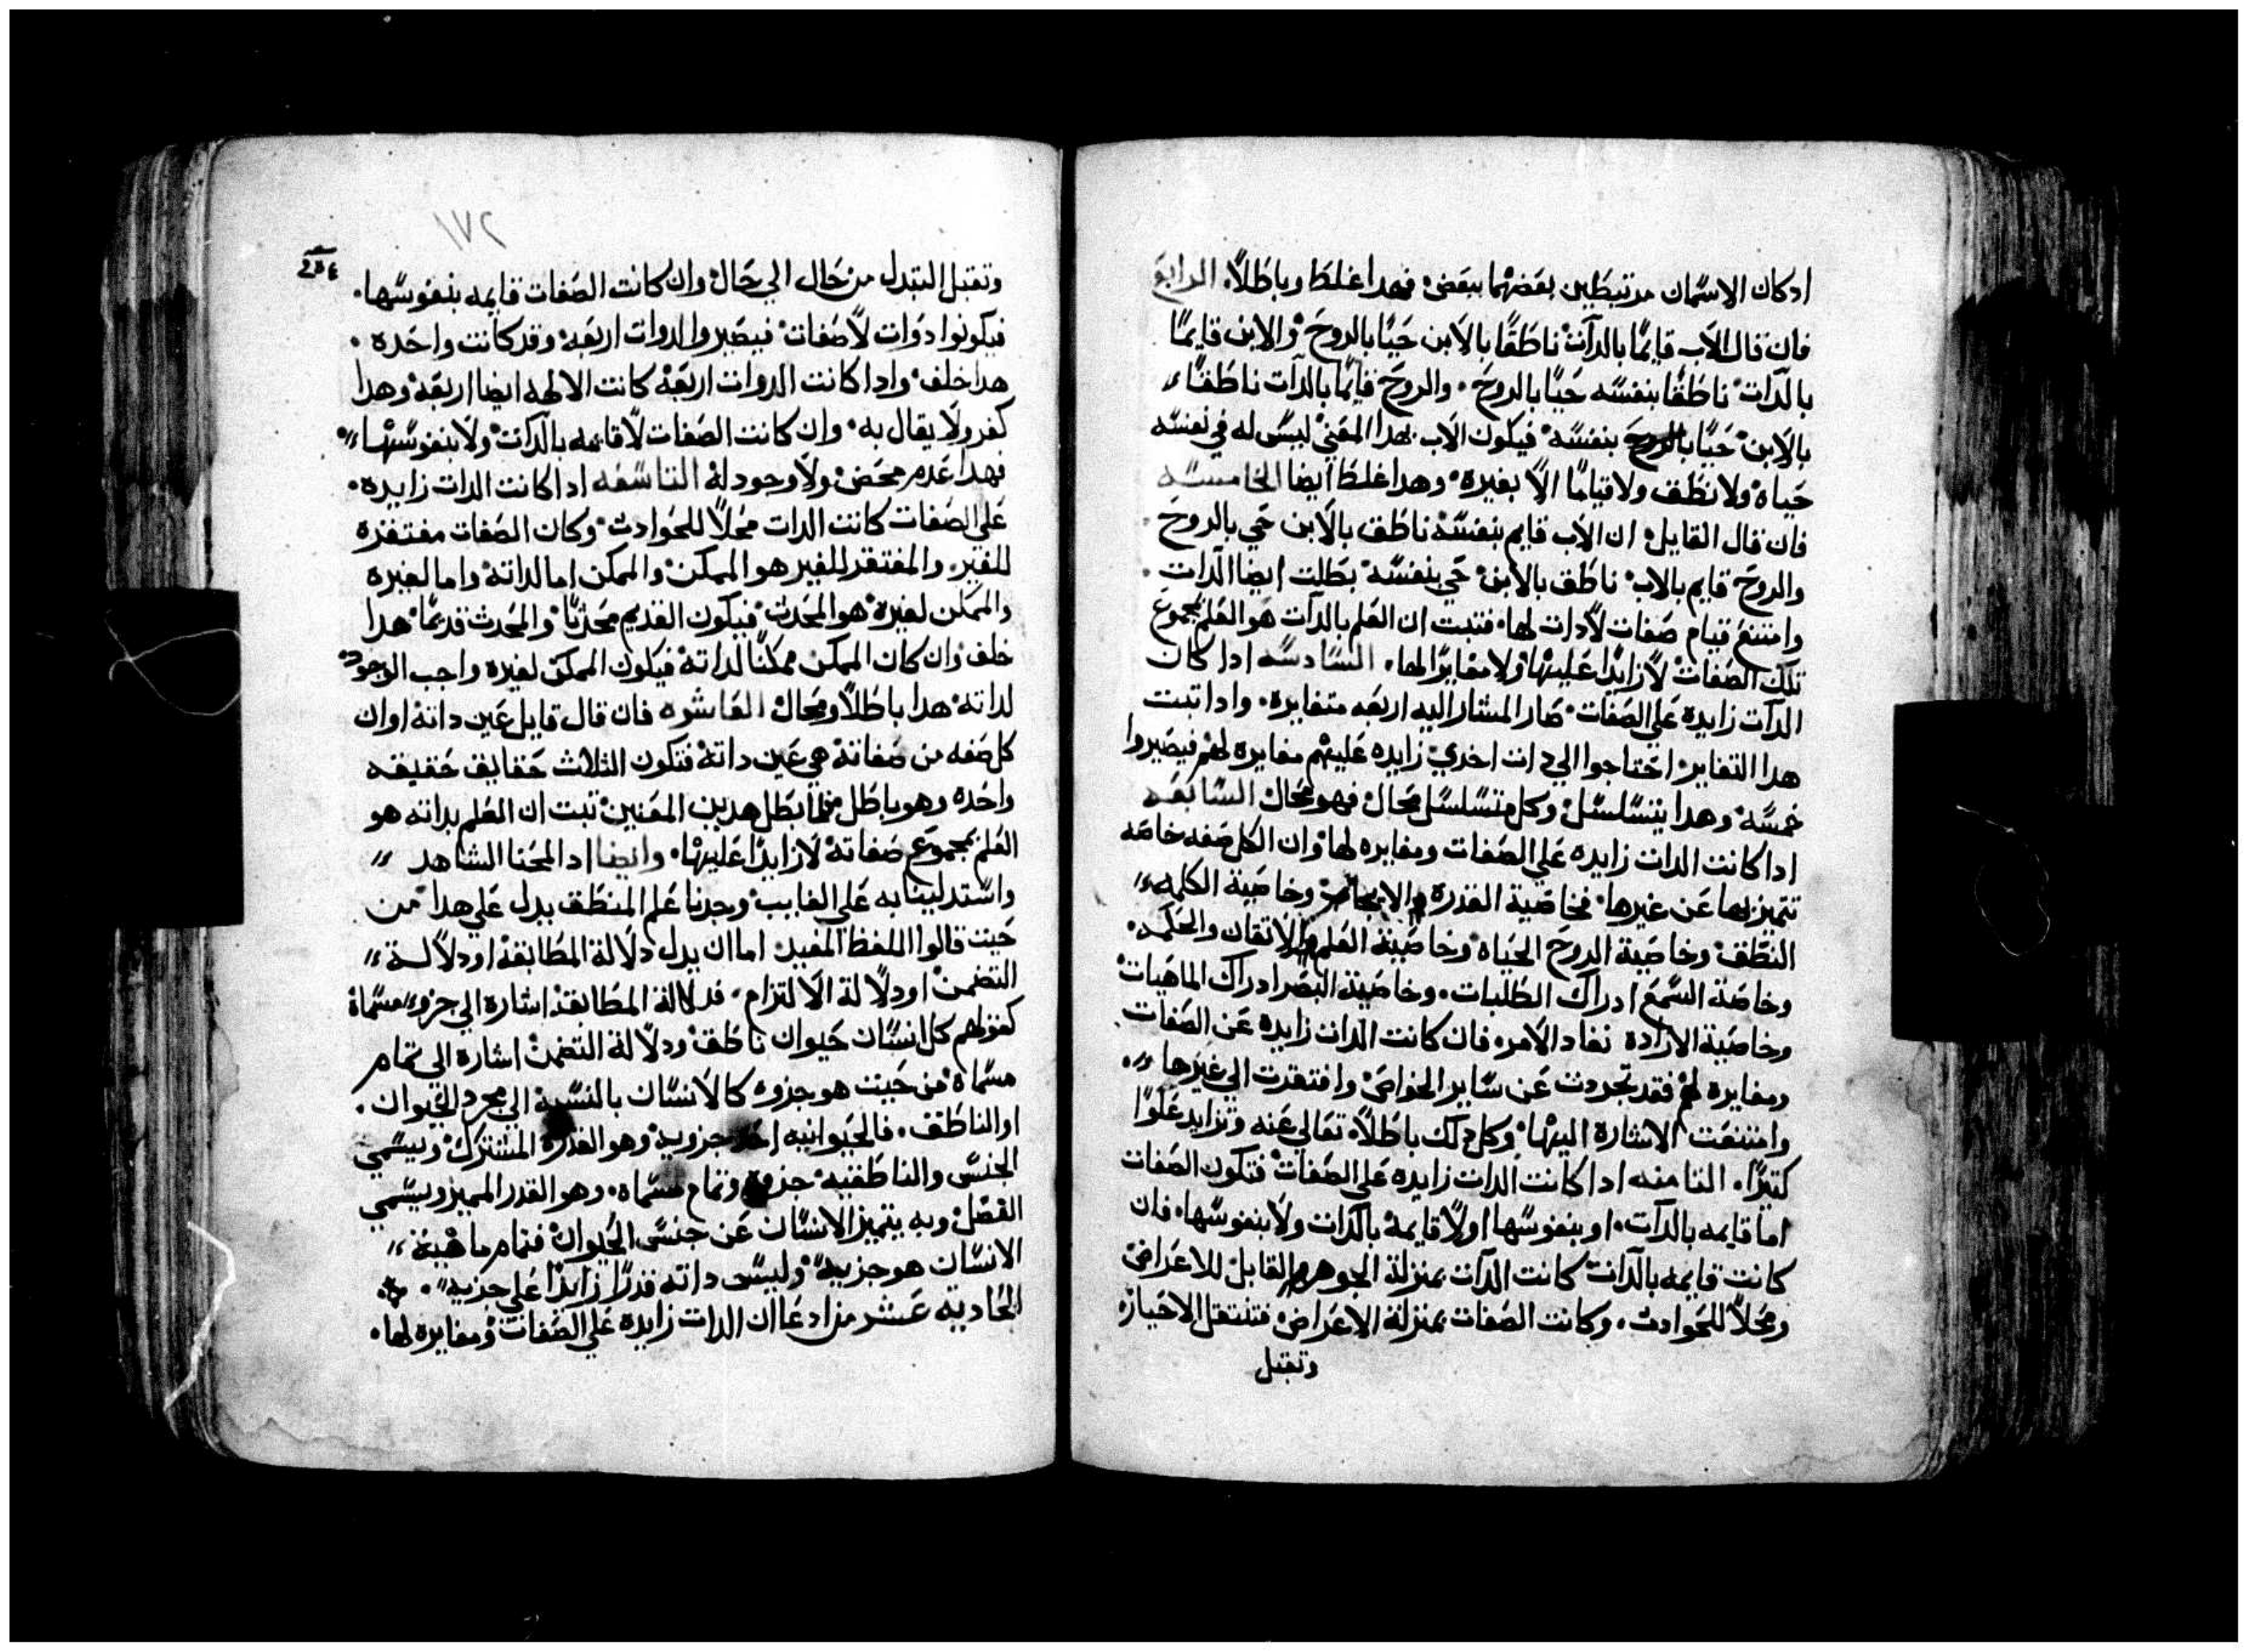 ادكان الاسمان مرتبطين بعضهما ببعض فهدا غلط وباطلاً. الرابع
فان قال الاب قايمًا بالدات ناطقًا بالابن حيًا بالروح والابن قايمًا
بالدات ناطقًا بنفسه حيًا بالروح. والروح قايمًا بالدات ناطقًا
بالابن حيًا بالروح بنفسه فيكون الاب بهدا المعني ليس له في نفسه
حياه ولا نطق ولا قيامًا الا بغيره وهدا غلط ايضا الخامسه
فان قال القايل ان الاب قايم بنفسه ناطق بالابن حي بالروح
والروح قايم بالاب ناطق بالابن حي بنفسه بطلت ايضا الدات.
وامتنع قيام صفات لادات لها فتبت ان العلم بالدات هو العلم بمجموع
تلك الصفات لا زايدًا عليها ولا مغايرًا لها. السادسه ادا كان
الدات زايدة علي الصفات صار المشار اليه اربعه متغايرة. وادا تبت
هدا التغاير احتاجوا الي دات اخري زايده عليهم مغايرة لهم فيصيروا
خمسه وهدا يتسلسل وكل متسلسل محال فهو محال السابعه
اداكانت الدات زايده علي الصفات ومغايره لها وان الكل صفه خاصه
تتميز بها عن غيرها فخاصية القدرة والايجاد وخاصية الكلمه
النطق وخاصية الروح الحياه وخاصية العلم الاتقان والحكمه.
وخاصة السمع ادراك الطلبات. وخاصية البصر ادراك الماهيات
وخاصية الارادة نفاد الامر فان كانت الدات زايده عن الصفات
ومغايره لهم فقد تجردت عن ساير الخواص وافتقرت الي غيرها
وامتنعت الاشارة اليها وكل دلك باطلاً تعالي عنه وتزايد علوًا
كتيرًا. التامنه اداكانت الدات زايده علي الصفات فتكون الصفات
اما قايمه بالدات. او بنفوسها اولا قايمة بالدات ولا بنفوسها فان
كانت قايمه بالدات كانت الدات بمنزلة الجوهر القابل للاعراض
ومحلاً للحوادت. وكانت الصفات بمنزلة الاعراض فتنتقل الاحيازه
وتقبل
١٧٢
وتقبل التبدل من حال الي حال وان كانت الصفات قايمه بنفوسها.
فيكونوا دوات لاصفات فيصيروا الدوات اربعه وقد كانت واحده.
هدا خلف وادا كانت الدوات اربعة كانت الالهه ايضا اربعة وهدا
كفر ولا يقال به. وان كانت الصفات لا قايمه بالدات ولا بنفوسها
فهدا عدم محض ولا وجود له التاسعه اداكانت الدات زايده.
علي الصفات كانت الدات محلاً للحوادت وكان الصفات مفتقرة
للغير. والمفتقر للغير هو الممكن والممكن اما لداته واما لغيره
والممكن لغيره هو المحدت فيكون القديم محدتًا والمحدت قديمًا هدا
خلف وان كان الممكن ممكنًا لداته فيكون الممكن لغيره واجب الوجود
لداته هدا باطلاً ومحال العاشره فان قال قايل عين داته او ان
كل صفه من صفاته هي عين داته فتكون التلات حقايق حقيقه
واحده وهو باطل فلما بطل هدين المعنين تبت ان العلم بداته هو
العلم بمجموع صفاته لا زايدًا عليها. وايضا اد المحنا الشاهد
واستدلينا به علي الغايب وجدنا علم المنطق يدل علي هدا من
حيت قالوا اللفظ المفيد اما ان يدل دلالة المطابقة او دلالة
التضمن او دلالة الالتزام. فدلالة المطابقة اشارة الي جزو مسماة
كقولهم كل انسان حيوان ناطق ودلالة التضمن اشارة الي تمام
مسماة من حيت هو جزوه كالانسان بالنسبة الي مجرد الحيوان.
او الناطق. فالحيوانيه احد جزويه وهو القدر المشترك ويسمي
الجنس والناطقيه جزوه وتمام مسماه. وهو القدر المميز ويسمي
الفصل وبه يتميز الانسان عن جنس الحيوان فتمام ماهية
الانسان هو جزيه وليس داته قدرًا زايدًا علي جزيه.
الحادية عشر من ادعا ان الدات زايدة علي الصفات ومغايره لها.